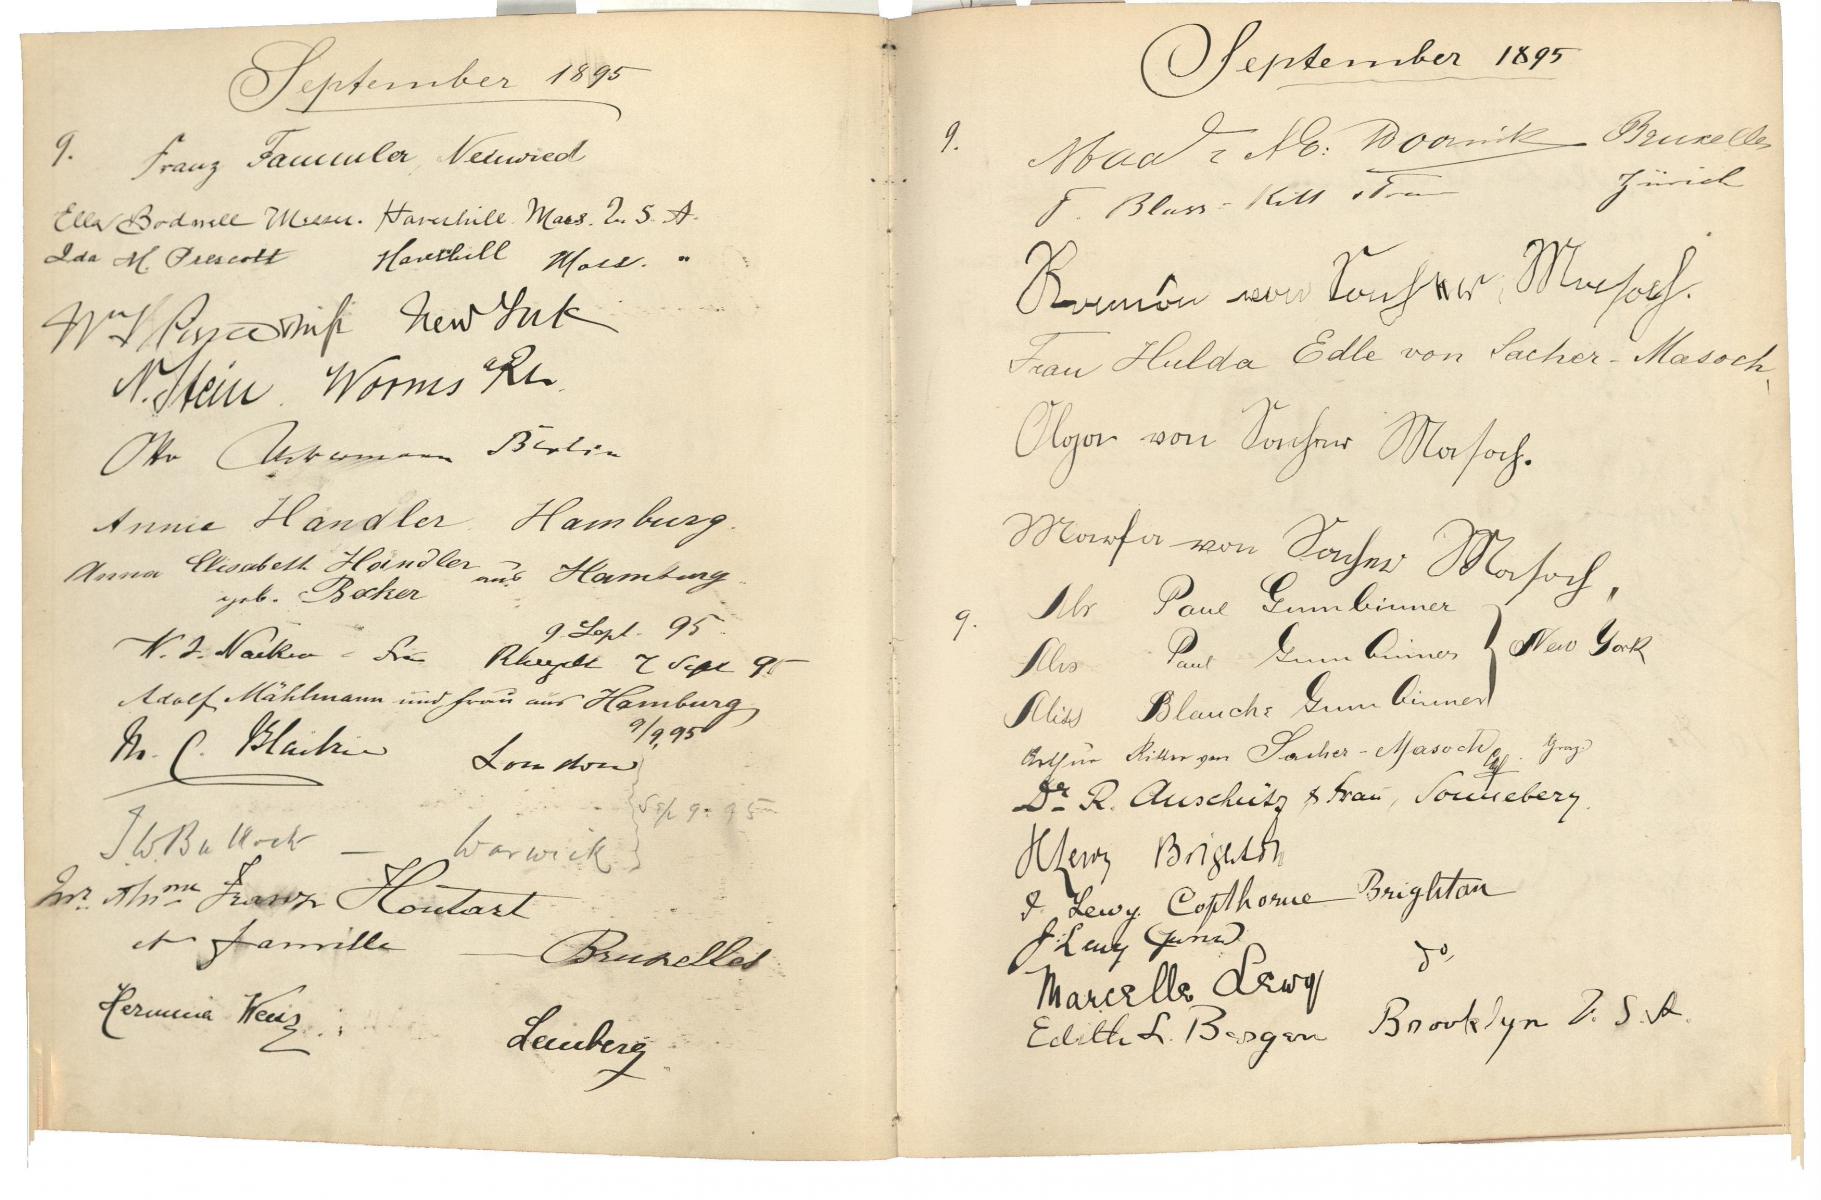 September 1895
9.
Franz Fammler, Neuwied
Ella Bodwell Haverhill Mass. U. S. A.
Ida M. Prescott Haverhill Mass. "
New York
N. Stein Worms a/Rh.
Otto Ackermann Berlin
Annie Handler Hamburg.
Anna Elisabeth Handler aus Hamburg
geb. Becker
9 Sept. 95
Rheydt 7 Sept 95
Adolf Mählmann und Frau aus Hamburg
9/9.95
M. C. Blaikie London
Sep 9. 95
J. W. Bullock — Warwick
Mr. Mme Franz Houtart
et famille — Bruxelles
Hermina Weisz
Lemberg
September 1895
9.
Doornik Bruxelles
Zürich
von Sacher Masoch.
Frau Hulda Edle von Sacher-Masoch,
Olga von Sacher Masoch.
Marfa von Sacher Masoch,
9. Mr Paul Gumbinner
Mrs Paul Gumbinner New York
Miss Blanche Gumbinner
Arthur Ritter von Sacher-Masoch Graz
Dr. R. Auschütz & Frau, Sonneberg.
H Lewy Brighton
J. Lewy Copthorne Brighton
J. Lewy do,
Marcelle Lewy
Edith L. Bergen Brooklyn U. S. A.